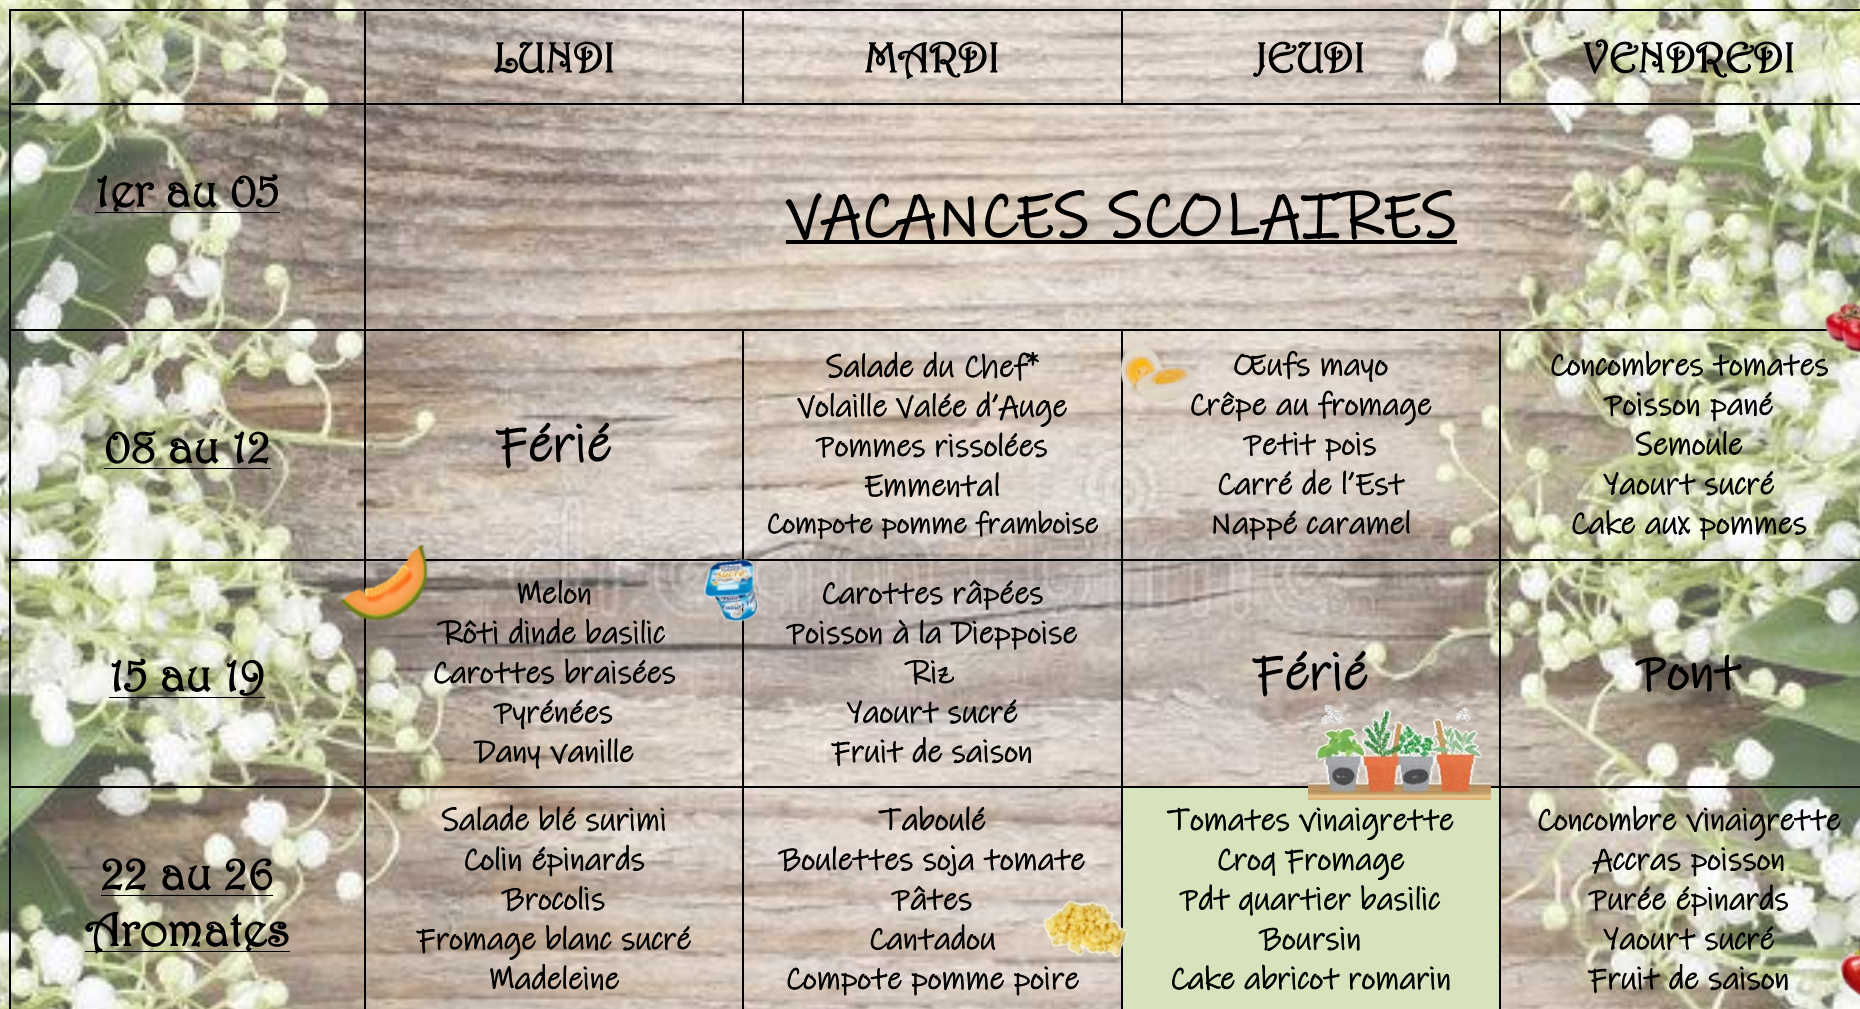 LUNDI MARDI JEUDI VENDREDI
1er au 05
VACANCES SCOLAIRES
08 au 12
Férié
Salade du Chef*
Volaille Valée d'Auge
Pommes rissolées
Emmental
Compote pomme framboise
Œufs mayo
Crêpe au fromage
Petit pois
Carré de l'Est
Nappé caramel
Concombres tomates
Poisson pané
Semoule
Yaourt sucré
Cake aux pommes
15 au 19
Melon
Rôti dinde basilic
Carottes braisées
Pyrénées
Dany vanille
Carottes râpées
Poisson à la Dieppoise
Riz
Yaourt sucré
Fruit de saison
Férié
Pont
22 au 26
Aromates
Salade blé surimi
Colin épinards
Brocolis
Fromage blanc sucré
Madeleine
Taboulé
Boulettes soja tomate
Pâtes
Cantadou
Compote pomme poire
Tomates vinaigrette
Croq Fromage
Pdt quartier basilic
Boursin
Cake abricot romarin
Concombre vinaigrette
Accras poisson
Purée épinards
Yaourt sucré
Fruit de saison